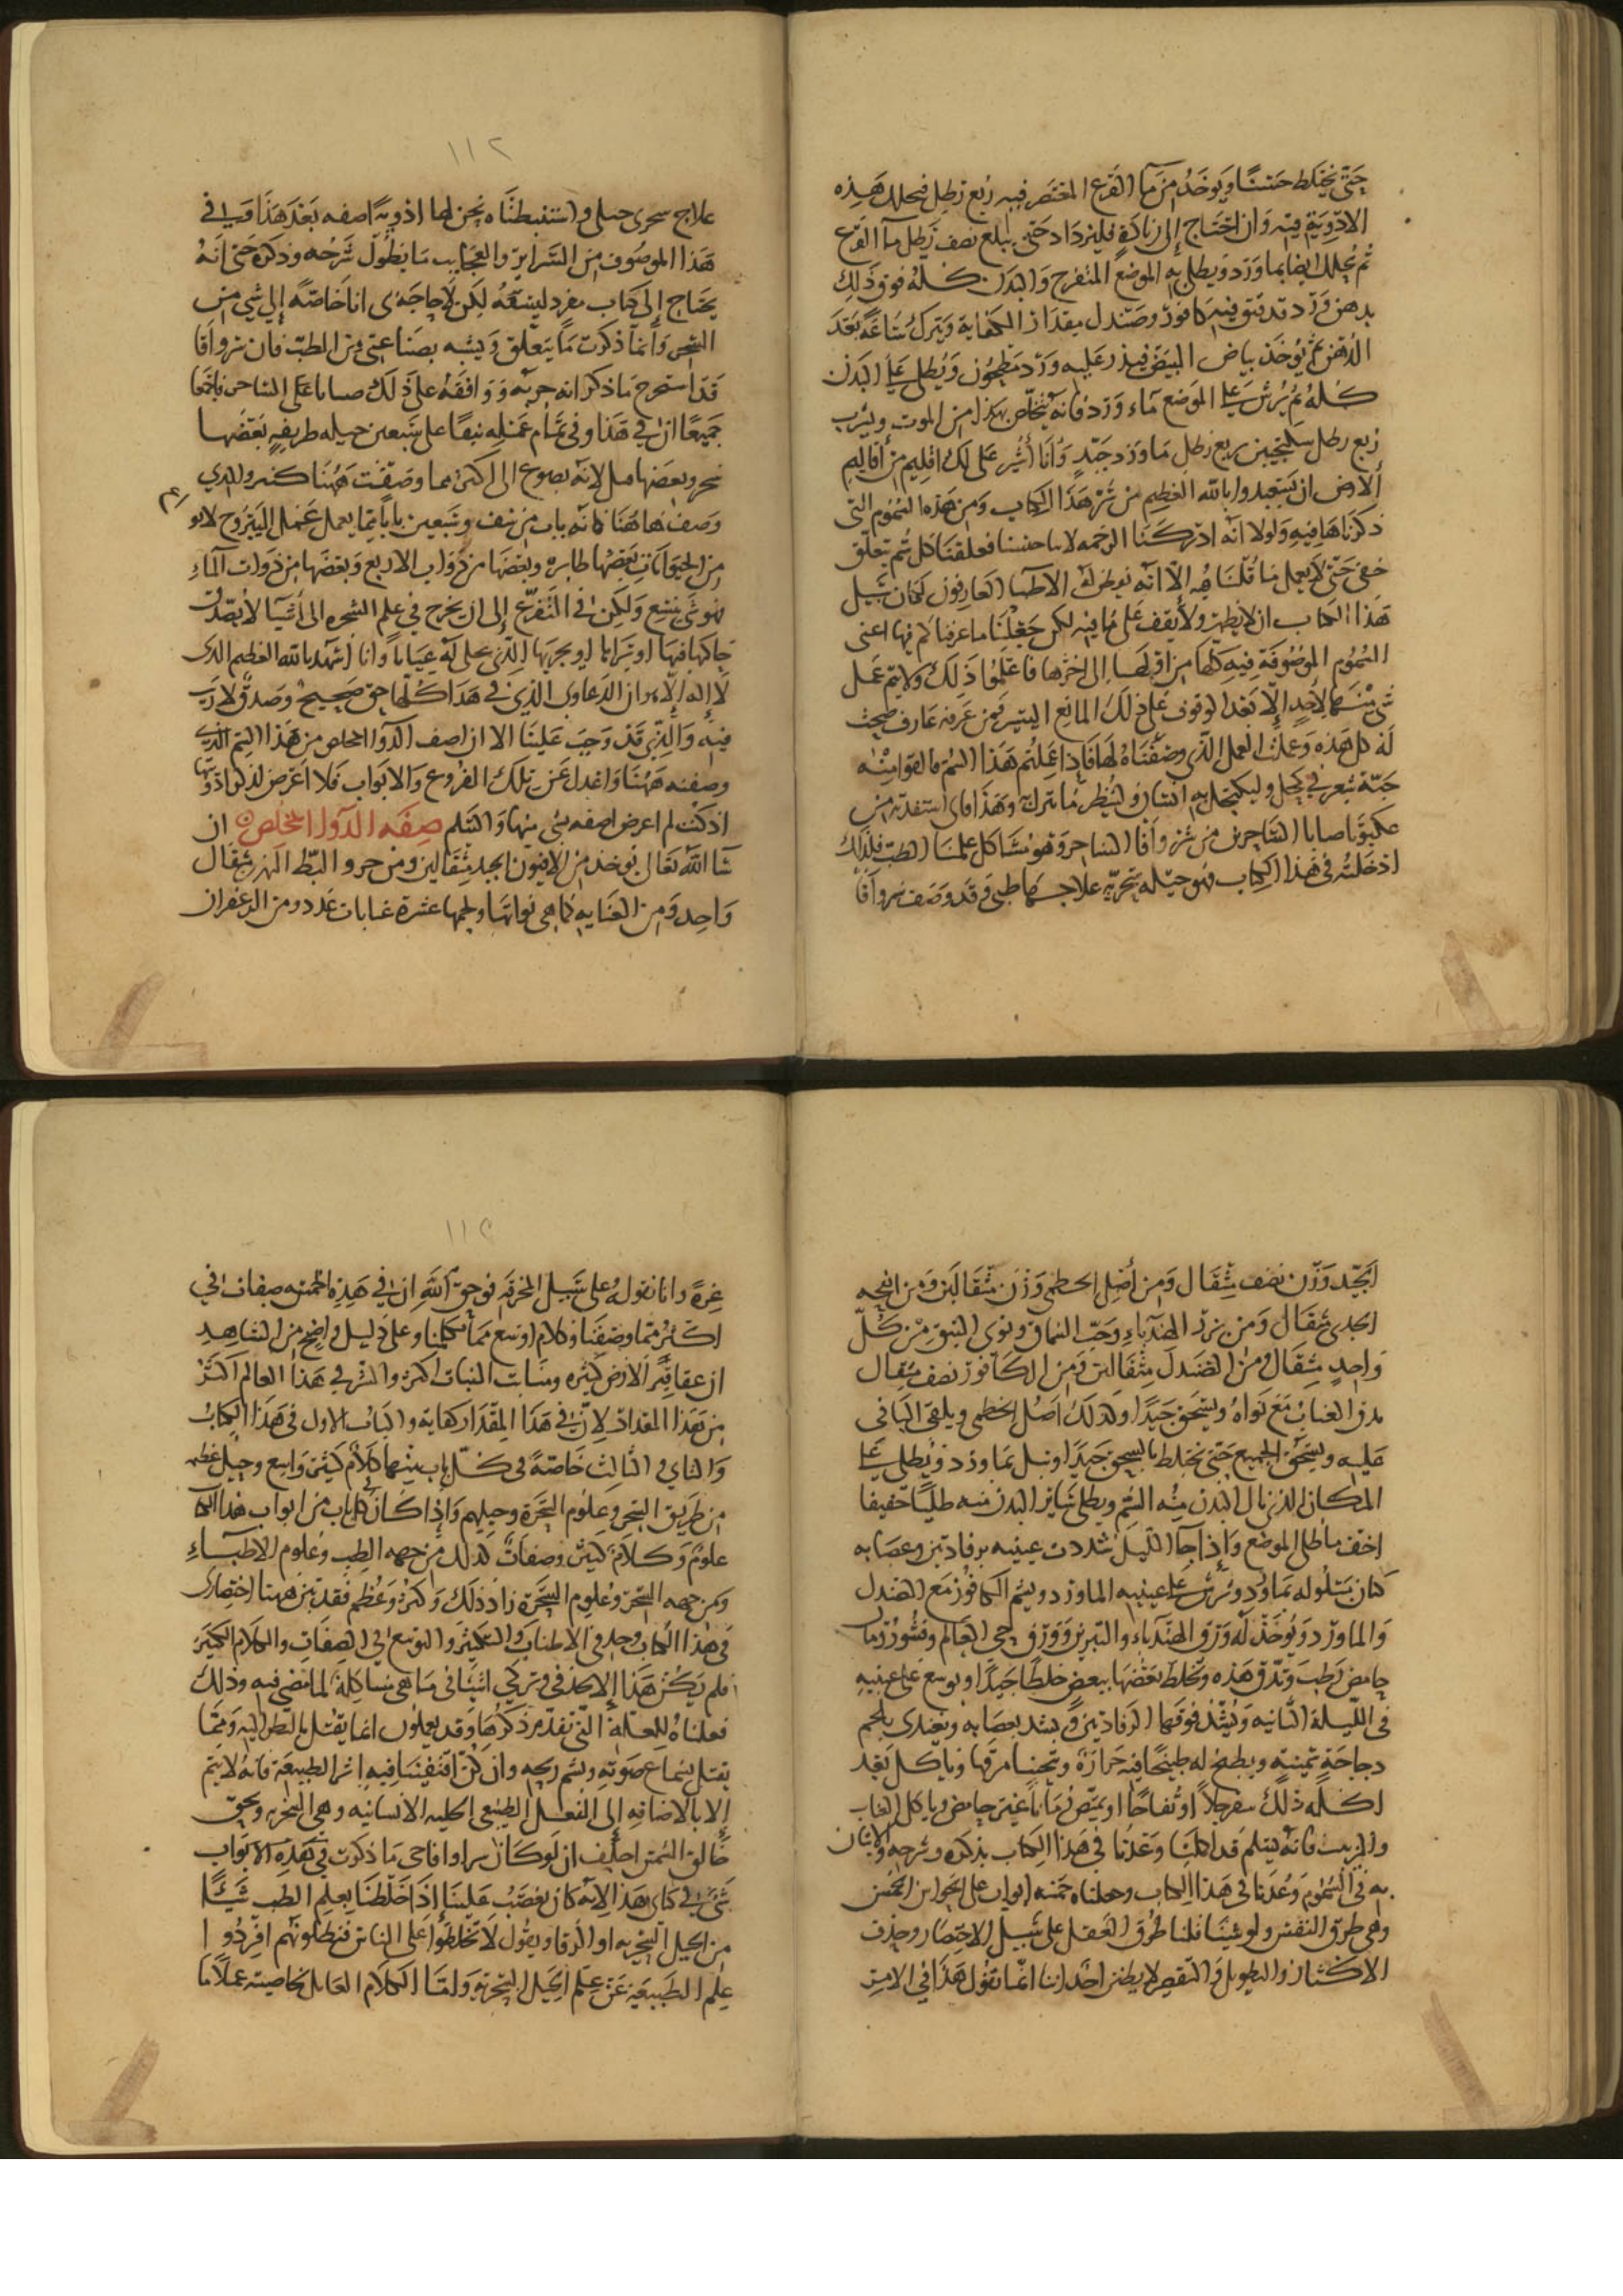 حتى يختلط حسنًا ويوخذ من ما القرع المعتصر فيه ربع رطل فيحلل هذه
الادوية فيه وان احتاج إلى زيادة فليزداد حتى يبلغ نصف رطل مآ القرع
ثم يحلل ايضا بما ورد ويطلى به الموضع المتقرح والبدن كله فوق ذلك
بدهن ورد قد فتق فيه كافور وصندل مقدار الكفاية ويترك ساعة بعد
الدهن ثم يوخذ بياض البيض فيذر عليه ورد مطحون ويطلى على البدن
كله ثم يرش على الموضع مآء ورد فانه يتخلص بهذا من الموت ويشرب
ربع رطل سكنجبين بربع رطل ما ورد جيد وانا أشير على لك اقليم من أقاليم
ألارض ان يستعيدوا بالله العظيم من شر هذا الكتاب ومن هذه السموم التي
ذكرناها فيه ولولا انه ادركتنا الرحمه لابنا جنسنا فعلقنا كل سم بعلق
خفى حتى لا يعمل ما قلنا فيه إلا انه يفطن له الاطبا العارفون لكان سبيل
هذا الكتاب ان لا يظهر ولا يقف على ما فيه لكن جعلنا ما عرفناكم فيها اعنى
السموم الموصوفة فيه كلها من اولها إلى اخرها فاعلموا ذلك ولا يتم عمل
شى منها لأحد إلا بعد الوقوف على ذلك المانع اليسير فمن عرفه عارف صحت
له كل هذه وعملت العمل الذي وصفناه لها فاذا عملتم هذا السم فالقوا منه
حبة شعر في كحل وليكتحل به انسان ولينظر ما يترك وهذا فاى استفدته من
اصابا الساحر من شرواقا الساحر وهو مشاكل علمنا الطب فلذلك
ادخلته فى هذا الكتاب فهو حيله سحرية علاجها طبى وقد وصف شرواقا
١١٢
علاج سحرى حيلى واستنبطناه نحن لها ادوية اصفه بعد هذا وفي
هذا الموصوف من السراير والعجايب ما يطول شرحه وذكره حتى انه
يحتاج إلى كتاب مفرد ليتسعه لكن لا حاجة بى انا خاصة إلى شي من
السحر وأنما ذكرت ما يتعلق ويشبه بصناعتى من الطب فان شرواقا
قد استخرج ما ذكر انه جربه ووافقه على ذلك صبابا على الساحر فاجمعا
جميعًا ان في هذا وفى تمام عمله نيفًا على سبعين حيله طريفه بعضها
سحر وبعضها حيل لانه يصوغ الى اكثر مما وصفت ههنا كثير والذي
وصف هاهنا فانه باب من نيف وسبعين بابا مما يعمل عمل اليبروح لابو
من الحيوانات بعضها طايره وبعضها من ذوات الاربع وبعضها من ذوات المآء
فهو شى بشع ولكن في التفرع إلى ان يخرج في علم السحره الى أشيآ لا يصدق
حاكها فيها او يراها او يجربها الذي على له عيانا وانا أشهد بالله العظيم الذى
لا إله إلا هو ان الدعاوى الذي في هذا كلها حق صحيح وصدق لا ريب
فيه والذي قد وجب علينا الا ان اصف الدوا المخلص من هذا السم الذى
وصفته ههنا واعدل عن تلك الفروع والابواب فلا اعرض لذكر ادويتها
اذ كنت لم اعرض لصفه شى منها والسلم صفه الدوا المخلص ان
شآ الله تعالى يوخذ من الافيون الجيد مثقالين ومن خرو البط النهرى مثقال
واحد ومن العنابه كما هي بنواتها ولحمها عشرة عنابات عدد ومن الزعفران
الجيد وزن نصف مثقال ومن أصل الخطمى وزن مثقالين ومن انفحه
الجدى مثقال ومن بزر الهندباء وحب السماق ونوى النبق من كل
واحد مثقال ومن الصندل مثقالين ومن الكافور نصف مثقال
يدق العناب مع نواه ويسحق جيدا وكذلك اصل الخطمى ويلقى الباقى
عليه ويسحق الجميع حتى تختلط بالسحق جيدًا ويبل بما ورد ويطلى على
المكان الذى نال البدن منه السم ويطلى ساير البدن منه طليًا خفيفا
اخف ما طلى الموضع وإذا جآ الليل شددت عينيه برفادتين وعصابه
كتان مبلوله بما ورد ويرش على عينيه الما ورد ويشم الكافور مع الصندل
والما ورد ويوخذ له ورق الهندباء والنسرين وورق حى العالم وقشور رمان
حامض رطب وتدق هذه وتخلط بعضها ببعض خلطًا جيدًا ويوضع على عينيه
فى الليلة الثانيه ويشد فوقها الرفادتين ويشد بعصابه ويغتذى بلحم
دجاجة سمينة ويطبخ له طبيخًا فيه حرارة ويتحسا مرقها وياكل بعد
اكله ذلك سفرجلا او تفاحًا او يمتص رمانا غير حامض وياكل العناب
والزبيب فانه يسلم قد اكملنا وعدنا في هذا الكتاب بذكره وشرحه والاتيان
به فى السموم وعدنا فى هذا الكتاب وجعلناه خمسه ابواب على الحواس الخمس
وهى طرق النفس ولو شينا قلنا طرق العقل على سبيل الاختصار وحذف
الاكثار والتطويل والتقصير لا يظن احد اننا انما نقول هذا في الامر
١١٣
غرةً وانا نقوله على سبيل المخرقه فوحق الله ان في هذه الخمسه صفات في
اكثر مما وصفنا وكلام اوسع مما تكلمنا وعلى دليل واضح من الشاهد
ان عقاقير الارض كثيره ومنابت النبات اكثر والشر في هذا العالم اكثر
من هذا المقدار لان في هذا المقدار كفاية والباب الاول فى هذا الكتاب
والثاني والثالث خاصة في كل باب منها كلام كثير واسع وحيل عظيمه
من طريق السحر وعلوم السحرة وحيلهم وإذا كان كل باب من ابواب هذا الكتاب
علوم وكلام كثير وصفات كذلك من جهه الطب وعلوم الاطباء
ومن جهه السحر وعلوم السحرة زاد ذلك وكثر وعظم فقد تبين ههنا اختصارى
في هذا الكتاب وحذفى الاطناب والتكثير والتوسع في الصفات والكلام الكثير
فلم يكن هذا إلا لحذفى وتركي اشيائى ما هى مشاكلة لما مضى فيه وذلك
فعلناه للعلة التى تقدم ذكرها وقد يعملون انما يقتل بالنظر اليه ومما
يقتل بسماع صوته وبشم ريحه وان كنا اقتفينا فيه اثر الطبيعة فانه لا يتم
إلا بالاضافه إلى الفعل الطبيعى الحيله الانسانيه وهى السحريه وبحق
خالق الشمس احلف ان لو كان شرواقا حى ما ذكرت في هذه الابواب
شى في كتابى هذا لانه كان يغضب علينا إذا خلطنا بعلم الطب شيئًا
من الحيل السحريه او الرقا ويقول لا تخلطوا على الناس فتبطلونهم افردوا
علم الطبيعة عن علم الحيل السحرية ولهذا الكلام العامل بخاصيته عملا ما